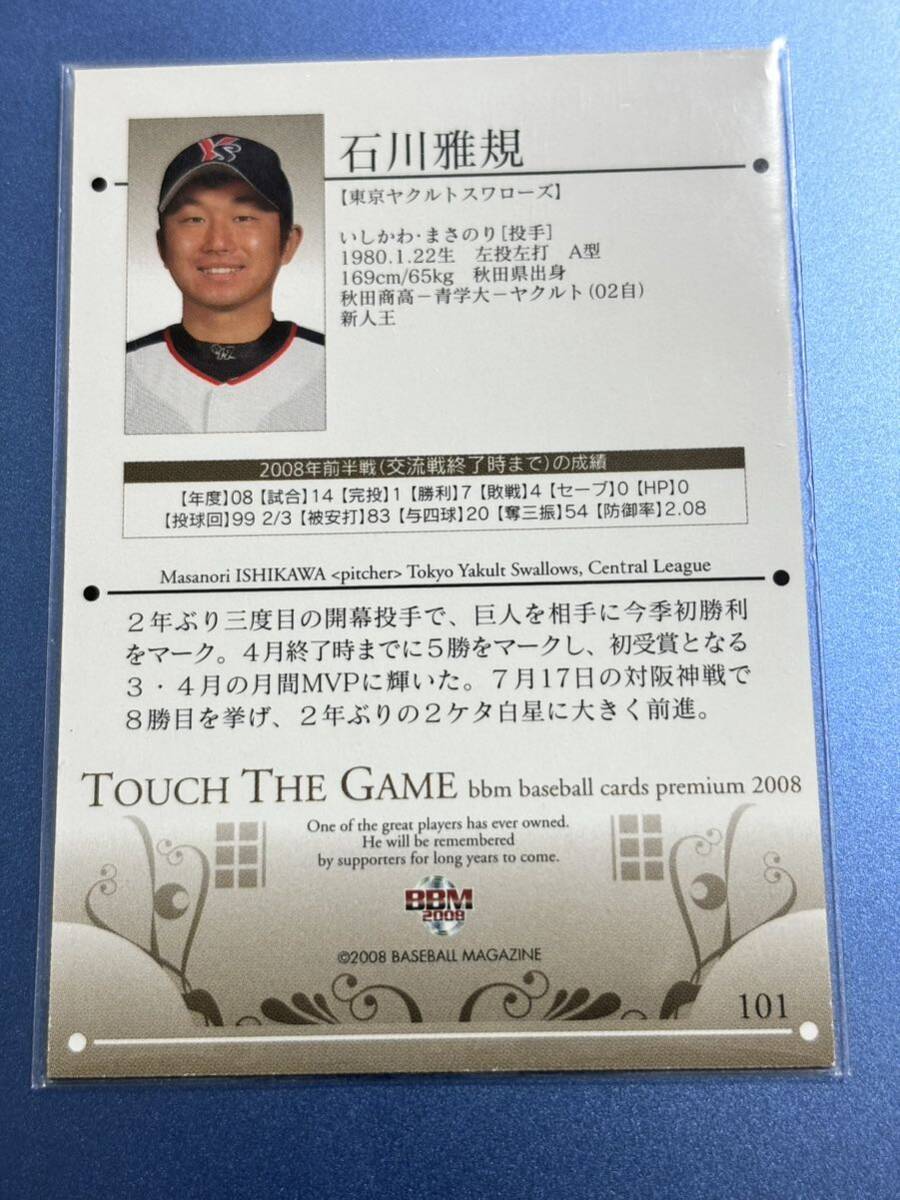 石川雅規
【東京ヤクルトスワローズ】
いしかわ・まさのり［投手］
1980.1.22生　左投左打　A型
169cm/65kg　秋田県出身
秋田商高－青学大－ヤクルト（02自）
新人王
2008年前半戦（交流戦終了時まで）の成績
【年度】08【試合】14【完投】1【勝利】7【敗戦】4【セーブ】0【HP】0
【投球回】99 2/3【被安打】83【与四球】20【奪三振】54【防御率】2.08
Masanori ISHIKAWA <pitcher> Tokyo Yakult Swallows, Central League
２年ぶり三度目の開幕投手で、巨人を相手に今季初勝利
をマーク。４月終了時までに５勝をマークし、初受賞となる
３・４月の月間MVPに輝いた。７月17日の対阪神戦で
８勝目を挙げ、２年ぶりの２ケタ白星に大きく前進。
TOUCH THE GAME bbm baseball cards premium 2008
One of the great players has ever owned.
He will be remembered
by supporters for long years to come.
BBM
2008
©2008 BASEBALL MAGAZINE
101